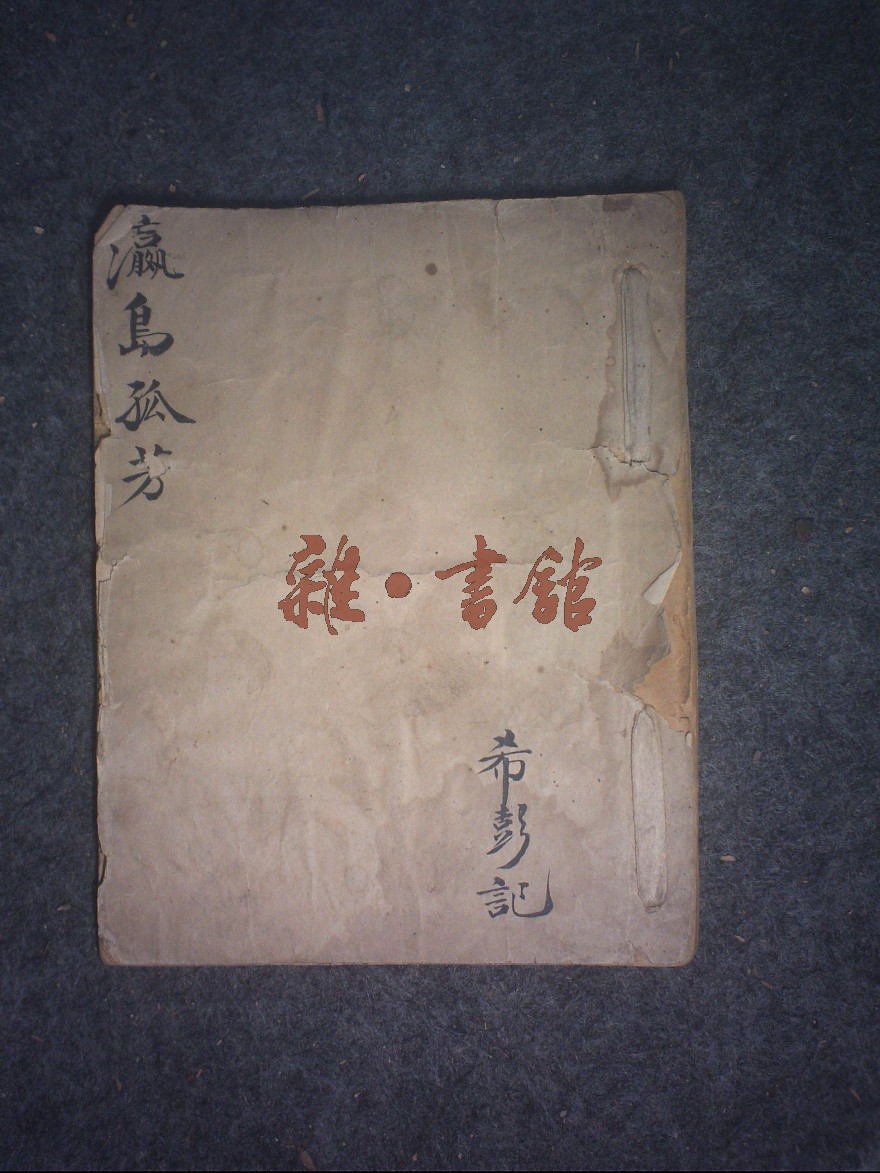 瀛島孤芳
雜·書館
希彭記